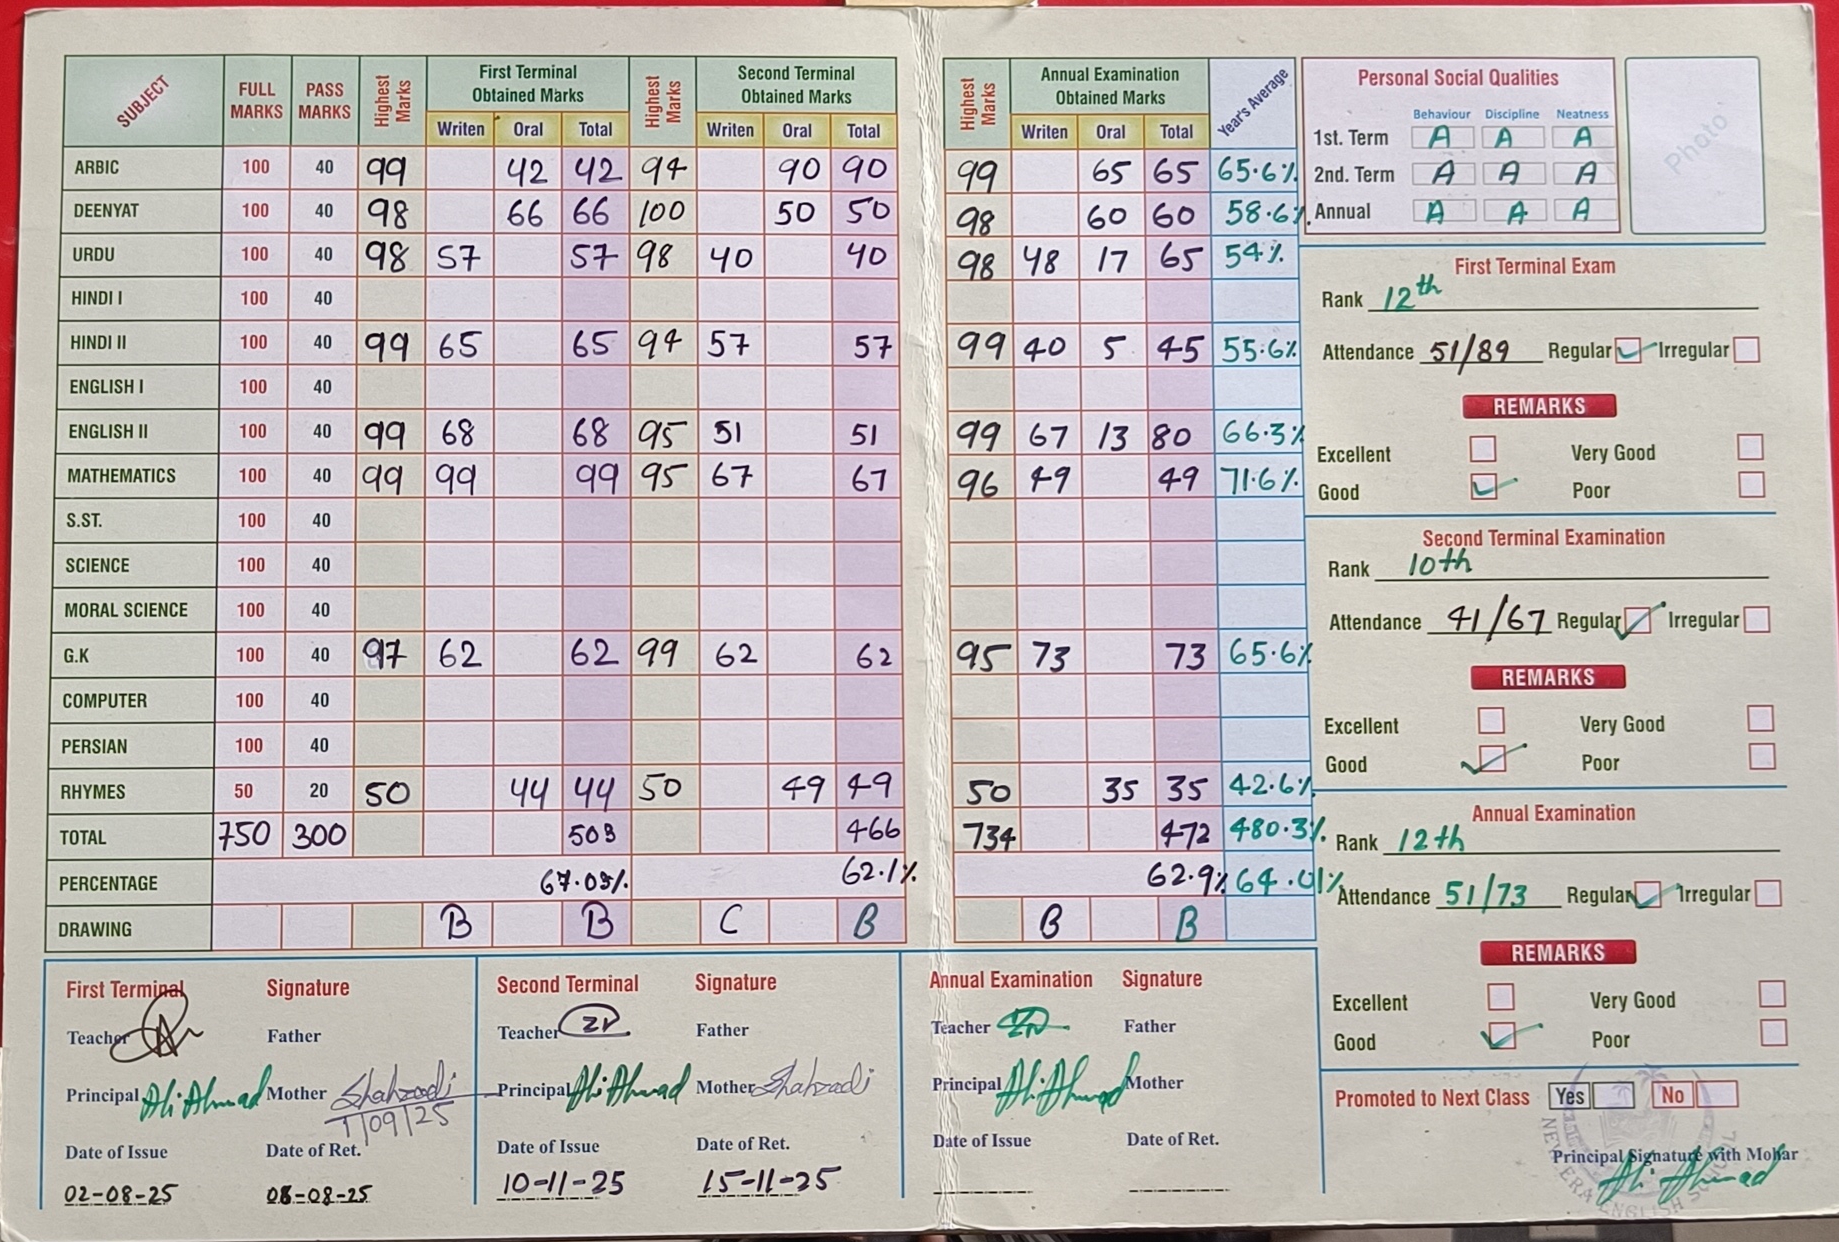 SUBJECT FULL MARKS PASS MARKS Highest Marks First Terminal Obtained Marks Highest Marks Second Terminal Obtained Marks Highest Marks Annual Examination Obtained Marks Year's Average
Writen Oral Total Writen Oral Total Writen Oral Total
ARBIC 100 40 99 42 42 94 90 90 99 65 65 65.6%
DEENYAT 100 40 98 66 66 100 50 50 98 60 60 58.6%
URDU 100 40 98 57 57 98 40 40 98 48 17 65 54%
HINDI I 100 40
HINDI II 100 40 99 65 65 94 57 57 99 40 5 45 55.6%
ENGLISH I 100 40
ENGLISH II 100 40 99 68 68 95 51 51 99 67 13 80 66.3%
MATHEMATICS 100 40 99 99 99 95 67 67 96 49 49 71.6%
S.ST. 100 40
SCIENCE 100 40
MORAL SCIENCE 100 40
G.K 100 40 97 62 62 99 62 62 95 73 73 65.6%
COMPUTER 100 40
PERSIAN 100 40
RHYMES 50 20 50 44 44 50 49 49 50 35 35 42.6%
TOTAL 750 300 503 466 734 472 480.3%
PERCENTAGE 67.05% 62.1% 62.9% 64.01%
DRAWING B B C B B B
Personal Social Qualities
Behaviour Discipline Neatness
1st. Term A A A
2nd. Term A A A
Annual A A A
Photo
First Terminal Exam
Rank 12th
Attendance 51/89 Regular Irregular
REMARKS
Excellent Very Good
Good Poor
Second Terminal Examination
Rank 10th
Attendance 41/67 Regular Irregular
REMARKS
Excellent Very Good
Good Poor
Annual Examination
Rank 12th
Attendance 51/73 Regular Irregular
REMARKS
Excellent Very Good
Good Poor
Promoted to Next Class Yes No
Principal Signature with Mohar
Ali Ahmad
NEW ERA ENGLISH SCHOOL
First Terminal Signature
Teacher Father
Principal Ali Ahmad Mother Shahzadi
7/09/25
Date of Issue Date of Ret.
02-08-25 08-08-25
Second Terminal Signature
Teacher ZN Father
Principal Ali Ahmad Mother Shahzadi
Date of Issue Date of Ret.
10-11-25 15-11-25
Annual Examination Signature
Teacher ZN Father
Principal Ali Ahmad Mother
Date of Issue Date of Ret.